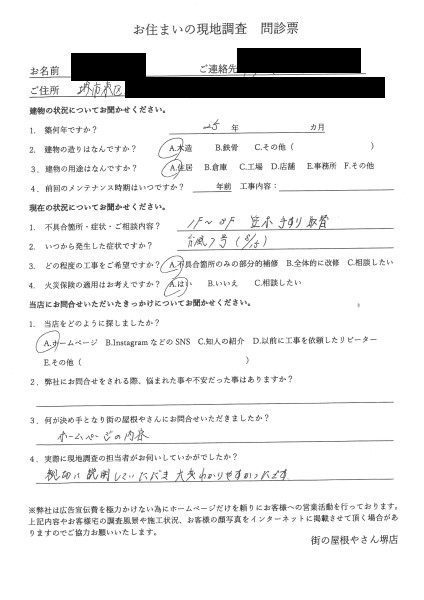 お住まいの現地調査 問診票
お名前 ご連絡先
ご住所 堺市東区
建物の状況についてお聞かせください。
1. 築何年ですか? 25 年 カ月
2. 建物の造りはなんですか? A.木造 B.鉄骨 C.その他( )
3. 建物の用途はなんですか? A.住居 B.倉庫 C.工場 D.店舗 E.事務所 F.その他
4. 前回のメンテナンス時期はいつですか? 年前 工事内容:
現在の状況についてお聞かせください。
1. 不具合箇所・症状・ご相談内容? 1F〜3F 笠木 手すり 取替
2. いつから発生した症状ですか? 台風7号(8/15)
3. どの程度の工事をご希望ですか? A.不具合箇所のみの部分的補修 B.全体的に改修 C.相談したい
4. 火災保険の適用はお考えですか? A.はい B.いいえ C.相談したい
当店にお問合せいただいたきっかけについてお聞かせください。
1. 当店をどのように探しましたか?
A.ホームページ B.InstagramなどのSNS C.知人の紹介 D.以前に工事を依頼したリピーター
E.その他( )
2. 弊社にお問合せをされる際、悩まれた事や不安だった事はありますか?
3. 何が決め手となり街の屋根やさんにお問合せいただきましたか?
ホームページの内容
4. 実際に現地調査の担当者がお伺いしていかがでしたか?
親切に説明していただき 大変わかりやすかったです
※弊社は広告宣伝費を極力かけない為にホームページだけを頼りにお客様への営業活動を行っております。
上記内容やお客様宅の調査風景や施工状況、お客様の顔写真をインターネットに掲載させて頂く場合があ
りますのでご協力お願いいたします。
街の屋根やさん堺店